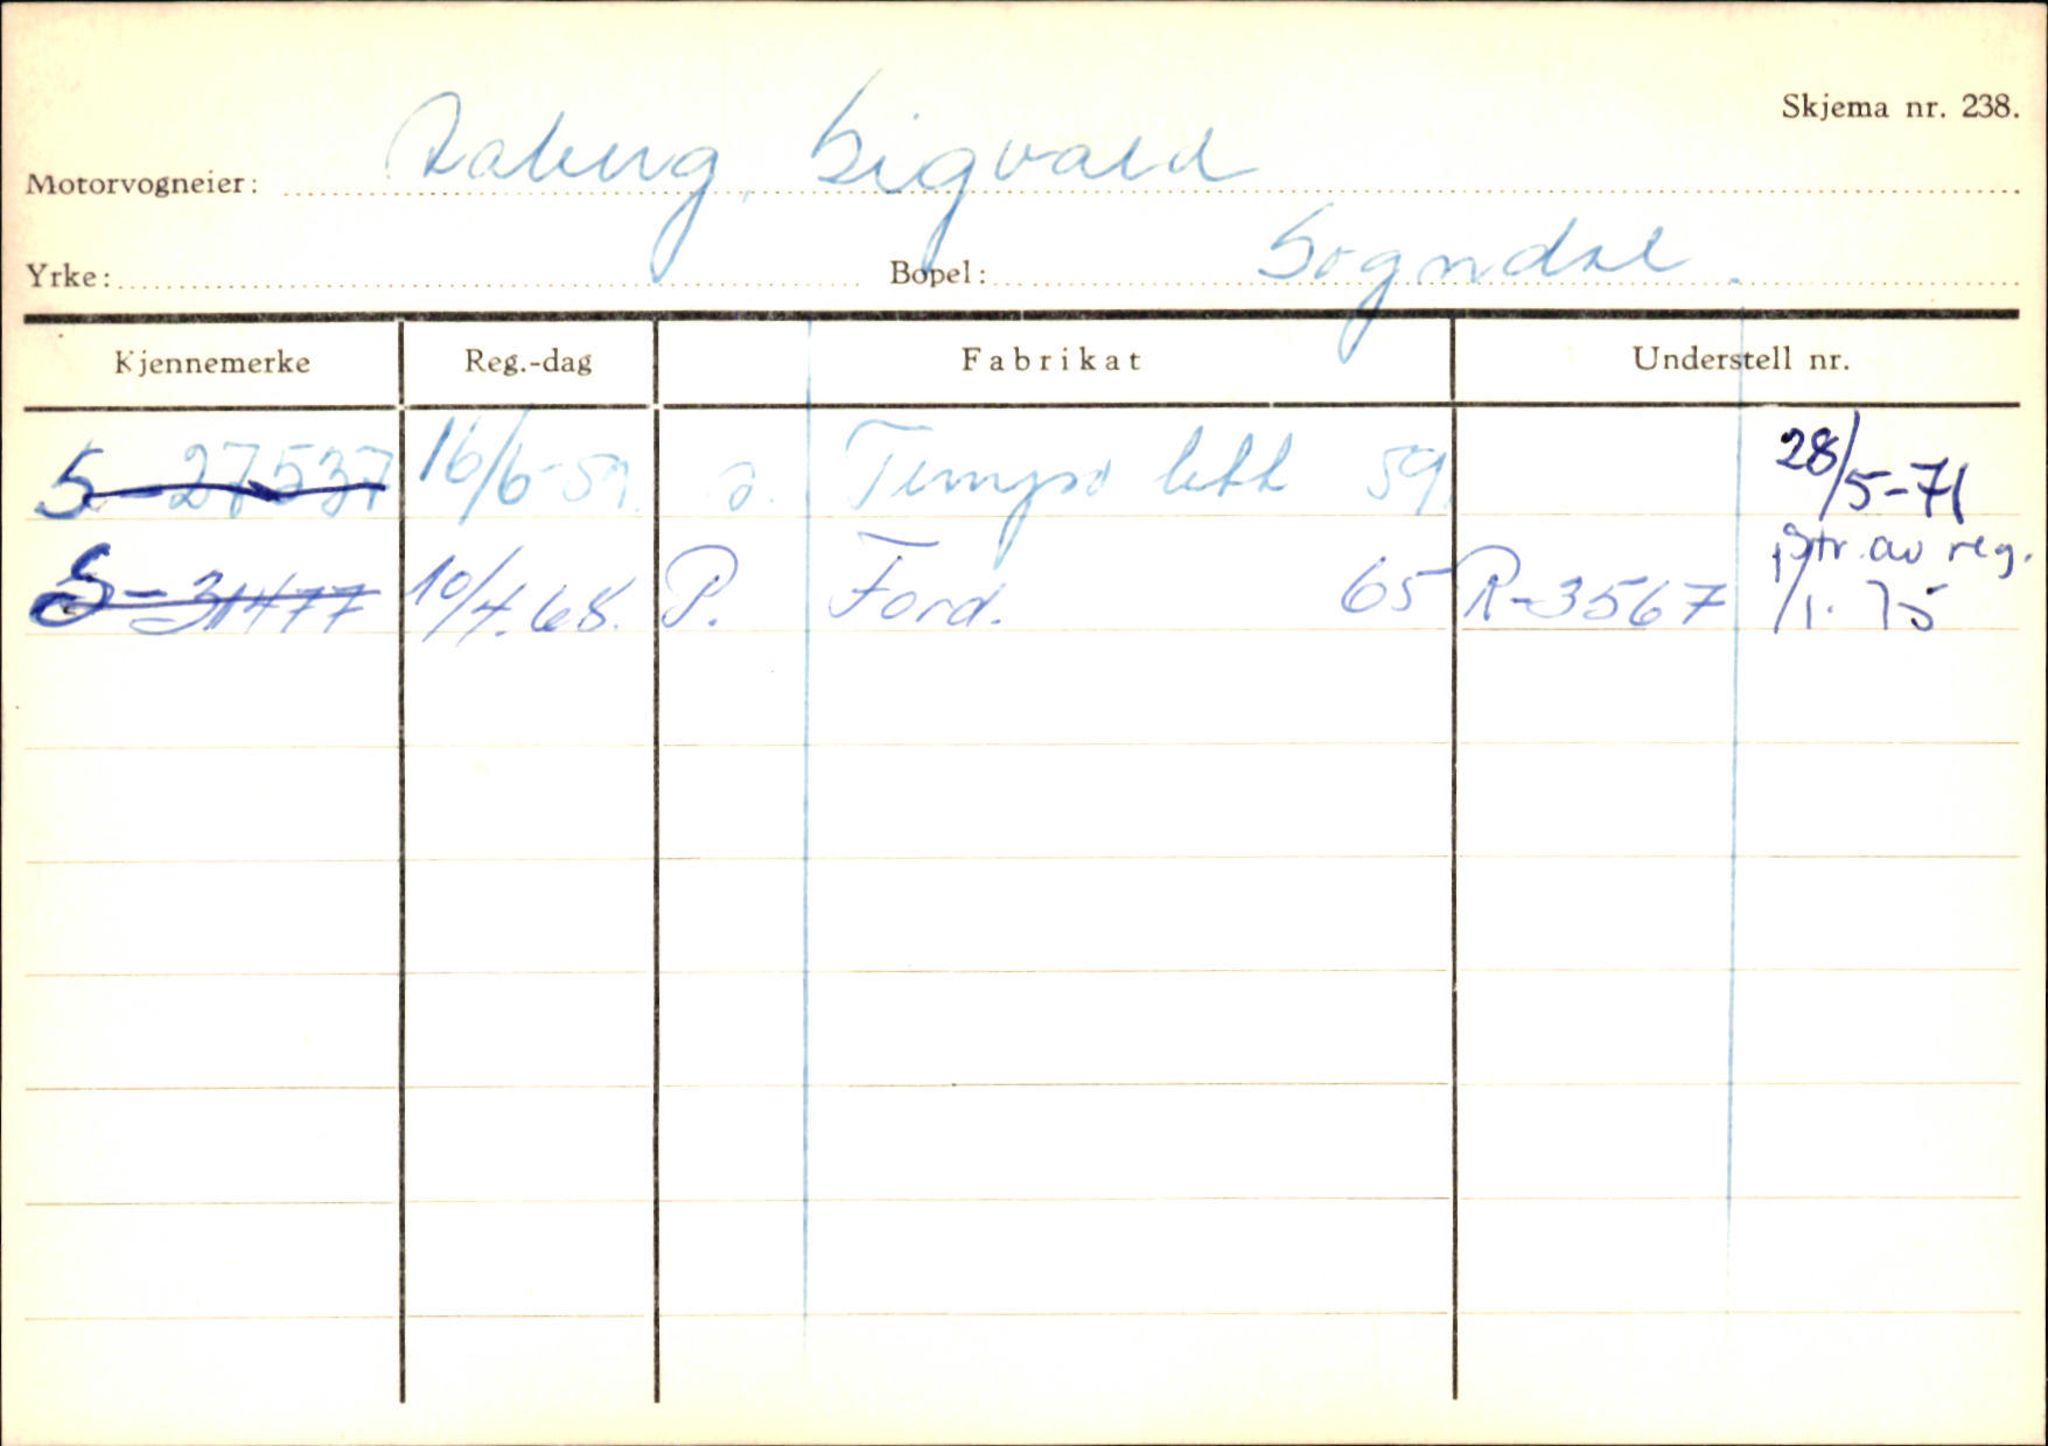 Skjema nr. 238.
Motorvogneier: Raberg, Sigvald
Yrke: Bopel: Sogndal.
Kjennemerke Reg.-dag Fabrikat Understell nr.
S-27537 16/6-59. Tempo lett 59 28/5-71
S-31477 10/4.68. P. Ford. 65 R-3567 Str. av reg.
1/1.75